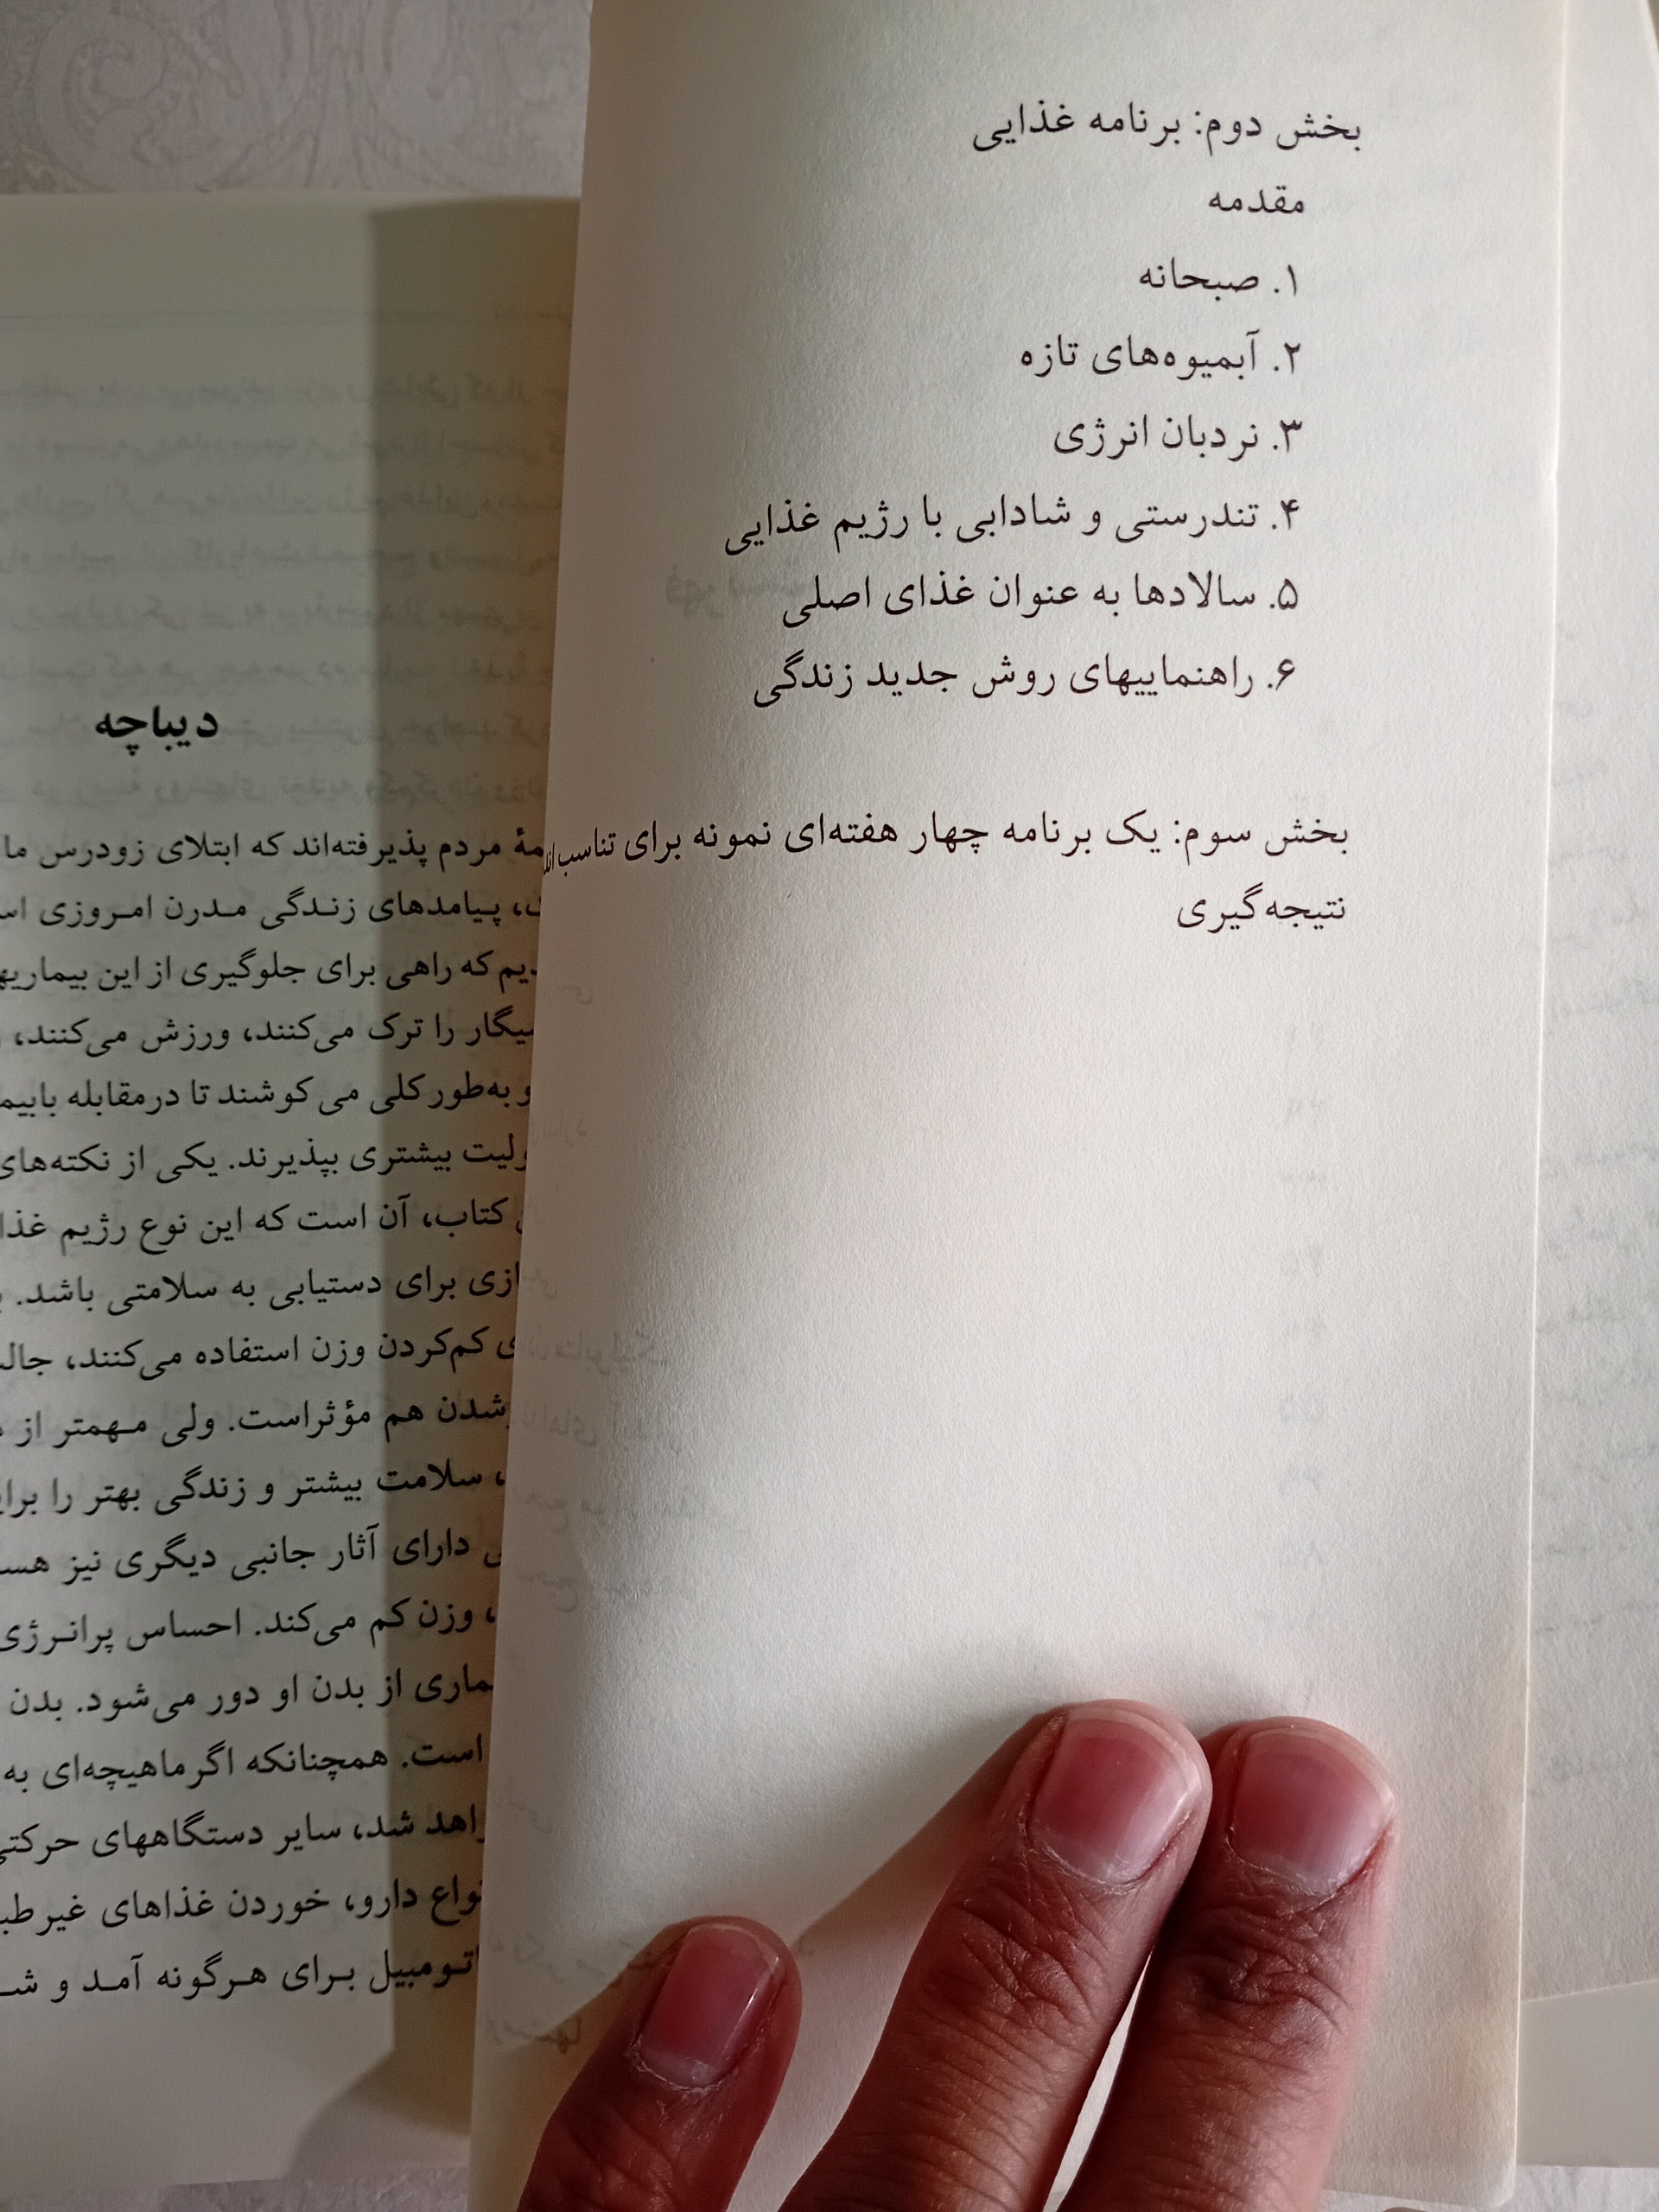 بخش دوم: برنامه غذایی
مقدمه
۱. صبحانه
۲. آبمیوه‌های تازه
۳. نردبان انرژی
۴. تندرستی و شادابی با رژیم غذایی
۵. سالادها به عنوان غذای اصلی
۶. راهنماییهای روش جدید زندگی
بخش سوم: یک برنامه چهار هفته‌ای نمونه برای تناسب
نتیجه‌گیری
دیباچه
مردم پذیرفته‌اند که ابتلای زودرس ما
پیامدهای زندگی مدرن امروزی
که راهی برای جلوگیری از این
را ترک می‌کنند، ورزش می‌کنند،
و به‌طور کلی می‌کوشند تا درمقابله
بیشتری بپذیرند. یکی از نکته‌های
کتاب، آن است که این نوع رژیم
برای دستیابی به سلامتی باشد.
کم‌کردن وزن استفاده می‌کنند،
شدن هم مؤثراست. ولی مهمتر از
، سلامت بیشتر و زندگی بهتر را
دارای آثار جانبی دیگری نیز
، وزن کم می‌کند. احساس
از بدن او دور می‌شود. بدن
است. همچنانکه اگر ماهیچه‌ای به
شد، سایر دستگاههای
دارو، خوردن غذاهای
برای هرگونه آمد و